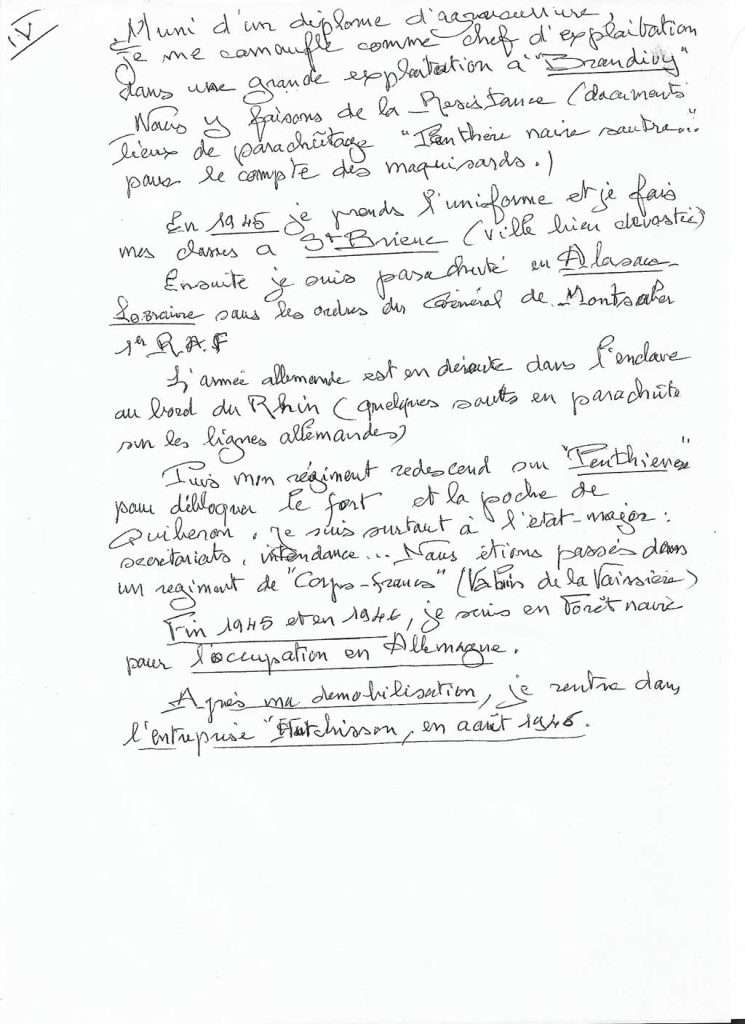 IV
Muni d'un diplome d'agriculture,
je me camoufle comme chef d'exploitation
dans une grande exploitation à "Brandivy"
Nous y faisons de la Resistance (documents
lieux de parachûtage "Panthère noire sautre..."
pour le compte des maquisards.)
En 1945 je prends l'uniforme et je fais
mes classes a St Brieuc (ville bien devastée)
Ensuite je suis parachuté en Alasace-
Lorraine sous les ordres du Général de
1er R.A.F
L'armée allemande est en déroute dans l'enclave
au bord du Rhin (quelques sauts en parachûte
sur les lignes allemandes)
Puis mon régiment redescend sur "Penthievre"
pour débloquer le fort et la poche de
Quiberon. Je suis surtout à l'état-major:
secretariats, intendance... Nous étions passés dans
un regiment de "Corps-francs" ( de la Vaissière)
Fin 1945 et en 1946, je suis en Forêt noire
pour l'occupation en Allemagne.
Après ma demobilisation, je rentre dans
l'entreprise "Hutchisson, en août 1946.